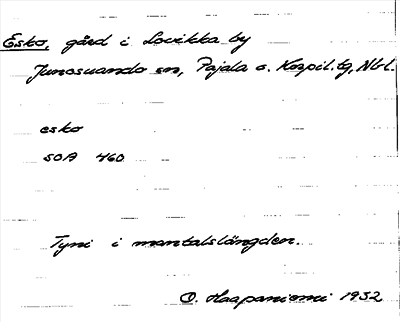 Esko, gård i Lovikka by
Junosuando sn, Pajala o. Korpil. tg, Nb l.
esko
SOA 460
Tyni i mantalslängden.
O. Haapaniemi 1932